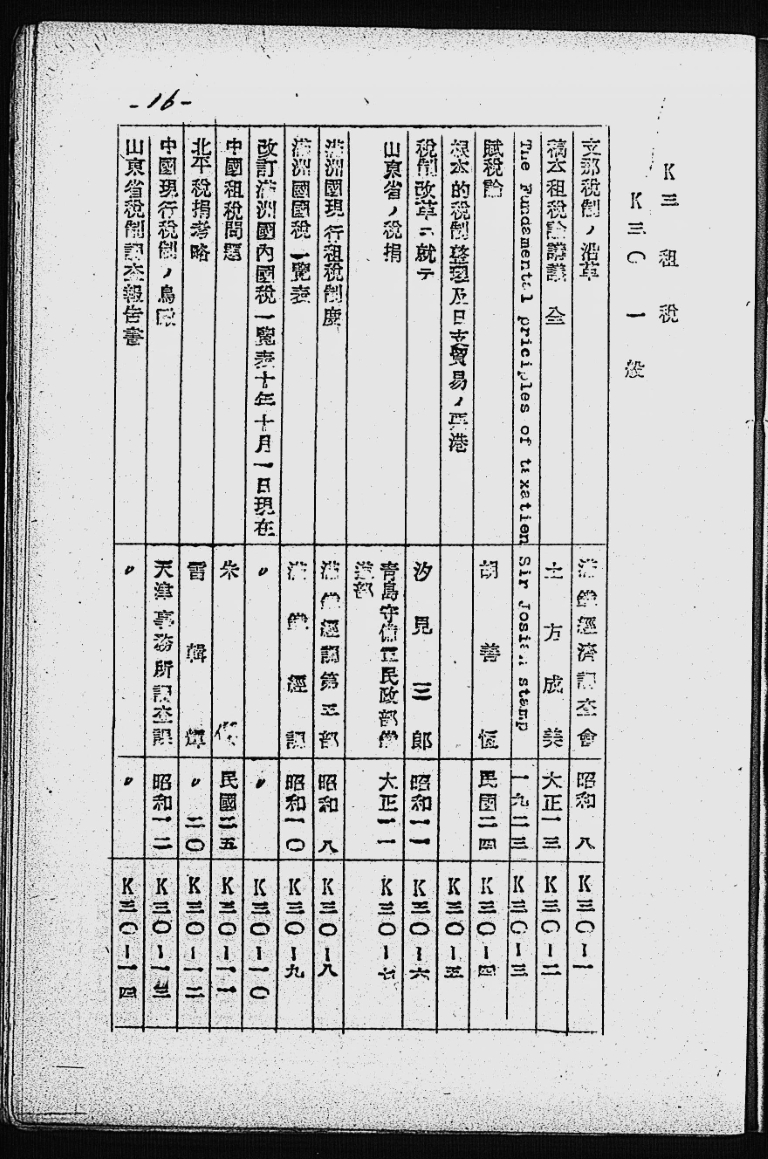 -16-
K三 租 税
K三〇 一 般
支那税制ノ沿革 満鐵經濟調査會 昭和 八 K三〇-一
稿本租税論講義 全 土方成美 大正一三 K三〇-二
The Fundamental priciples of taxation Sir Josiah stamp 一九二三 K三〇-三
賦税論 胡善恆 民國二四 K三〇-四
根本的税制整理及日支貿易ノ K三〇-五
税制改革ニ就テ 汐見三郎 昭和一一 K三〇-六
山東省ノ税捐 青島守備軍民政部鐵道部 大正一一 K三〇-七
満洲國現行租税制度 満鐵經調第五部 昭和 八 K三〇-八
満洲國國税一覽表 満鐵經調 昭和一〇 K三〇-九
改訂満洲國内國税一覽表十年十月一日現在 〃 〃 K三〇-一〇
中國租税問題 朱 偰 民國二五 K三〇-一一
北平税捐考略 雷輯輝 〃 二〇 K三〇-一二
中國現行税制ノ鳥瞰 天津事務所調査課 昭和一二 K三〇-一三
山東省税制調査報告書 〃 〃 K三〇-一四